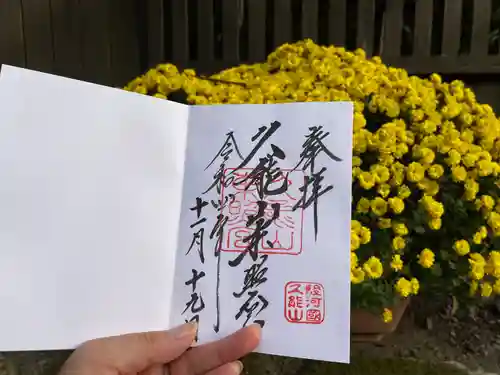 奉拝
久能山東照宮
令和 年
十一月十九日
駿河國
久能山